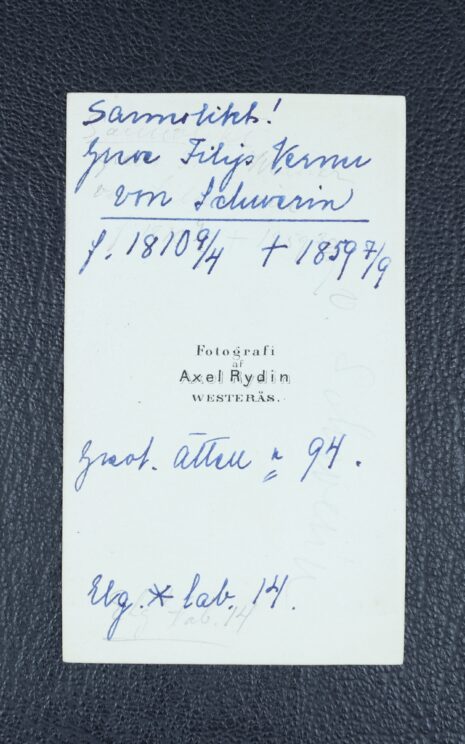 Sannolikt!
Greve Filip Werner
von Schwerin
f. 1810 9/4 + 1859 7/9
Fotografi
af
Axel Rydin
WESTERÅS.
Grevl. ätten n 94.
Elg. * tab. 14.